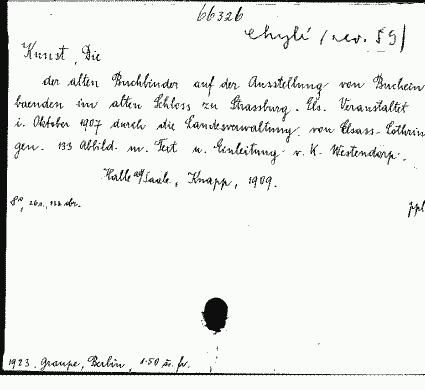 66326
chybí /rev. 59/
Kunst, Die
der alten Buchbinder auf der Ausstellung von Buchein
baenden im alten Schloss zu Strassburg. Els. Veranstaltet
i. Oktober 1907 durch die Landesverwaltung von Elsass. Lothrin
gen. 133 Abbild. m. Text u. Einleitung v. K. Westendorp.
Halle a/Saale, Knapp, 1909.
8°,
ppl
1923. Graupe, Berlin, 1.50 fr.